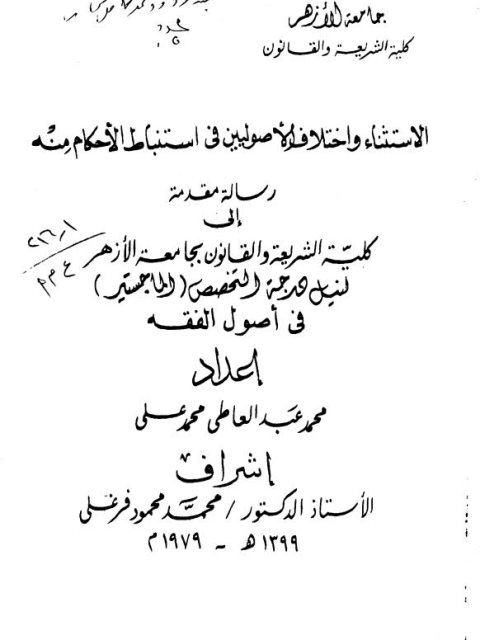 جامعة الأزهر
كلية الشريعة والقانون
الاستثناء واختلاف الأصوليين فى استنباط الأحكام منه
رسالة مقدمة
إلى
كليّة الشريعة والقانون بجامعة الأزهر
لنيل درجة التخصص (الماجستير)
فى أصول الفقه
إعداد
محمد عبد العاطى محمد على
إشراف
الأستاذ الدكتور / محمد محمود فرغلى
١٣٩٩ هـ - ١٩٧٩ م